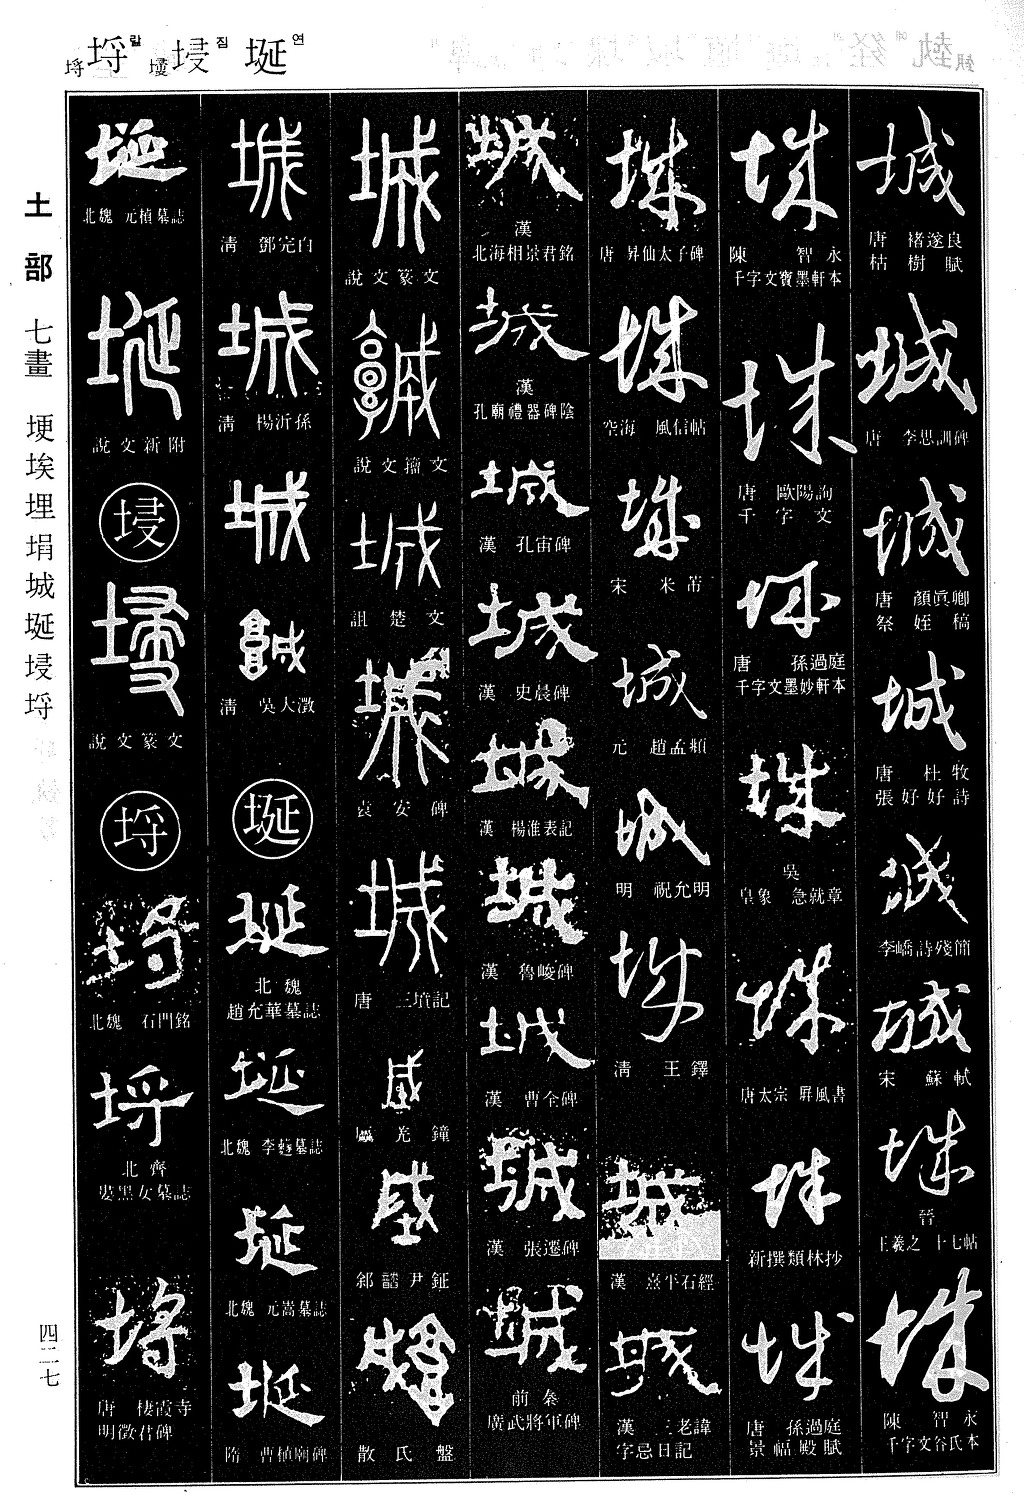 埒 埒랄 㙛 埐짐 埏연
土部 七畫 埂埃埋埍城埏埐埒
四二七
城
唐 褚遂良
枯樹賦
城
唐 李思訓碑
城
唐 顏眞卿
祭姪稿
城
唐 杜牧
張好好詩
城
李嶠詩殘簡
城
宋 蘇軾
城
晉
王羲之 十七帖
城
陳 智永
千字文谷氏本
城
陳 智永
千字文寶墨軒本
城
唐 歐陽詢
千字文
城
唐 孫過庭
千字文墨妙軒本
城
吳
皇象 急就章
城
唐太宗 屛風書
城
新撰類林抄
城
唐 孫過庭
景福殿賦
城
唐 昇仙太子碑
城
空海 風信帖
城
宋 米芾
城
元 趙孟頫
城
明 祝允明
城
淸 王鐸
城
漢 熹平石經
城
漢 三老諱
字忌日記
城
漢
北海相景君銘
城
漢
孔廟禮器碑陰
城
漢 孔宙碑
城
漢 史晨碑
城
漢 楊淮表記
城
漢 魯峻碑
城
漢 曹全碑
城
漢 張遷碑
城
前秦
廣武將軍碑
城
說文篆文
城
說文籀文
城
詛楚文
城
袁安碑
城
唐 三墳記
城
羌鐘
城
尹鉦
城
散氏盤
城
淸 鄧完白
城
淸 楊沂孫
城
城
淸 吳大澂
埏
埏
北魏
趙充華墓誌
埏
北魏 李蕤墓誌
埏
北魏 元嵩墓誌
埏
隋 曹植廟碑
埏
北魏 元楨墓誌
埏
說文新附
埐
埐
說文篆文
埒
埒
北魏 石門銘
埒
北齊
裴黑女墓誌
埒
唐 棲霞寺
明徵君碑